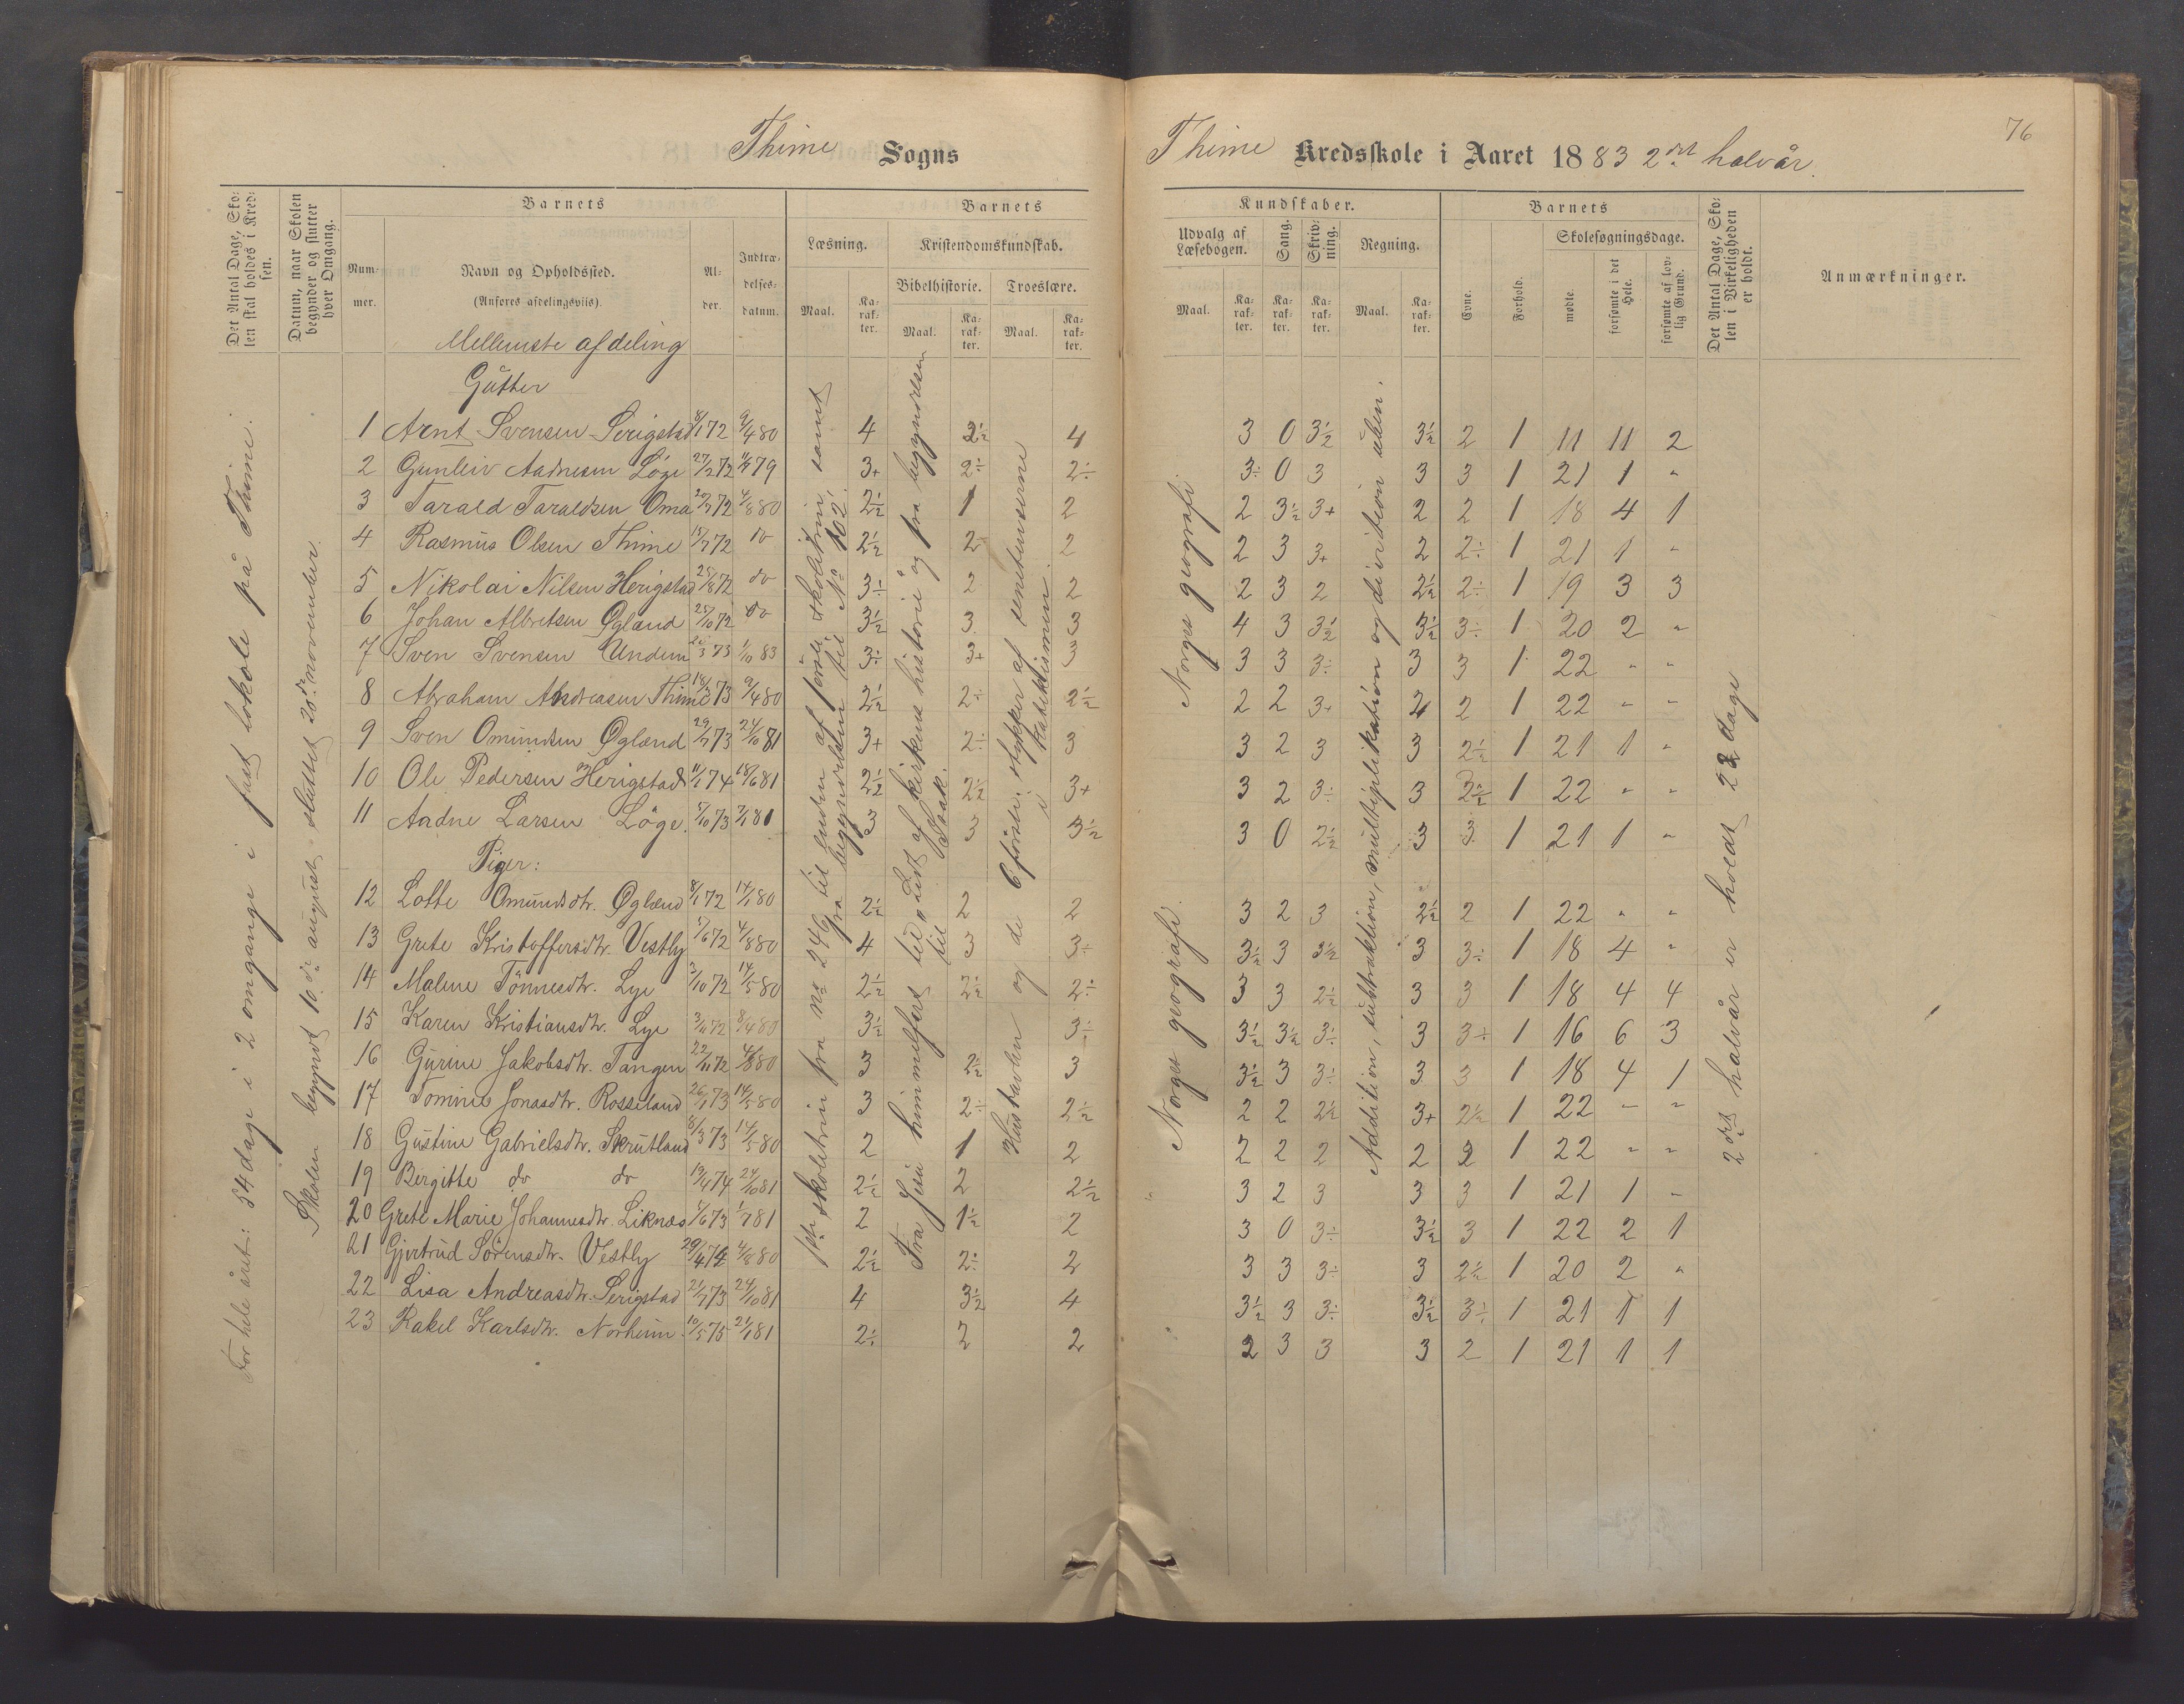 76
Thime Sogns
Thime Kredsskole i Aaret 1883 2det halvår.
Det Antal Dage, Sko-
len skal holdes i Kred-
sen.
Datum, naar Skolen
begynder og slutter
hver Omgang.
Barnets
Num-
mer.
Navn og Opholdssted.
(Anføres afdelingsviis).
Al-
der.
Indtræ-
delses-
datum.
Barnets
Læsning.
Kristendomskundskab.
Bibelhistorie.
Troeslære.
Maal.
Ka-
rak-
ter.
Maal.
Ka-
rak-
ter.
Maal.
Ka-
rak-
ter.
Kundskaber.
Udvalg af
Læsebogen.
Sang.
Skriv-
ning.
Regning.
Maal.
Ka-
rak-
ter.
Ka-
rak-
ter.
Ka-
rak-
ter.
Maal.
Ka-
rak-
ter.
Barnets
Evne.
Forhold.
Skolesøgningsdage.
mødte.
forsømte i det
Hele.
forsømte af lov-
lig Grund.
Det Antal Dage, Sko-
len i Virkeligheden
er holdt.
Anmærkninger.
For hele året: 54 dage i 2 omgange i fast lokale på Thime.
Skolen begyndt 10de august sluttet 20de november.
første skoletrin fra No 246 til enden af første skoletrin samt
fra begyndelsen til No 102.
Fra Jesu himmelfart til „Lidt af kirkens historie og fra begyndelsen
til Isak.
Hustavlen og de 6 første stykker af
i katekismen.
Norges geografi
Norges geografi.
Addition, subtraktion, multiplikation og division uben.
2det halvår er holdt 22 dage
Mellemste afdeling
Gutter
1 Arnt Svensen Serigstad 8/1 72 9/4 80 4 2½ 4 3 0 3½ 3½ 2 1 11 11 2
2 Gunleiv Aadnesen Löge 27/2 72 79 3+ 2÷ 2÷ 3÷ 0 3 3 3 1 21 1 "
3 Tarald Taraldsen Oma 72 4/8 80 2½ 1 2 2 3½ 3+ 2 2 1 18 4 1
4 Rasmus Olsen Thime 15/7 72 do 2½ 2 2 2 3 3+ 2 2÷ 1 21 1 "
5 Nikolai Nilsen Herigstad 25/8 72 do 3÷ 2 2 2 3 2 2½ 2÷ 1 19 3 3
6 Johan Albretsen Øgland 25/10 72 do 3½ 3 3 4 3 3½ 3½ 3÷ 1 20 2 "
7 Sven Svensen Undem 73 1/10 83 3÷ 3+ 3 3 3 3÷ 3 3 1 22 " "
8 Abraham Andreasen Thime 73 9/4 80 2½ 2÷ 2½ 2 2 3+ 2 2 1 22 " "
9 Sven Omundsen Øgland 29/7 73 24/10 81 3+ 2÷ 3 3 2 3 3 2½ 1 21 1 "
10 Ole Pedersen Herigstad 11/1 74 18/6 81 2½ 2½ 3+ 3 2 3÷ 3 2½ 1 22 " "
11 Aadne Larsen Löge. 5/10 73 7/1 81 3 3 3½ 3 0 2½ 3 3 1 21 1 "
Piger:
12 Lotte Omundsdtr. Øgland 8/1 72 14/1 80 2½ 2 2 3 2 3 2½ 2 1 22 " "
13 Grete Kristoffersdtr. Vestly 5/6 72 4/8 80 4 3 3÷ 3½ 3 3½ 3 3÷ 1 18 4 "
14 Malene Tönnesdtr. Lye 3/10 72 14/5 80 2½ 2½ 2÷ 3 3 2½ 3 3 1 18 4 4
15 Karen Kristiansdtr. Lye 72 8/4 80 3½ 3÷ 3½ 3½ 3÷ 3 3÷ 1 16 6 3
16 Gurine Jakobsdtr. Tangen 22/11 72 4/8 80 3 2½ 3 3½ 3 3÷ 3 3 1 18 4 1
17 Tomine Jonasdtr. Rosseland 26/1 73 14/5 80 3 2÷ 2½ 2 2 2½ 3+ 2½ 1 22 " "
18 Gustine Gabrielsdtr. Skrutland 8/3 73 14/5 80 2 1 2 2 2 2 2 2 1 22 " "
19 Bergitte do do 74 24/10 81 2½ 2 2½ 3 2 3 3 3 1 21 1 "
20 Grete Marie Johannesdtr. Liknæs 73 81 2 1½ 2 3 0 3÷ 3½ 3 1 22 2 1
21 Gjertrud Sörensdtr. Vestly 29/4 74 4/8 80 2½ 2÷ 2 3 3 3÷ 3 2½ 1 20 2 "
22 Lisa Andreasdtr. Serigstad 21/7 73 24/10 81 4 3½ 4 3½ 3 3÷ 3½ 3÷ 1 21 1 1
23 Rakel Karlsdtr. Norheim 10/5 75 21/1 81 2÷ 2 2 2 3 3 3 2 1 21 1 1